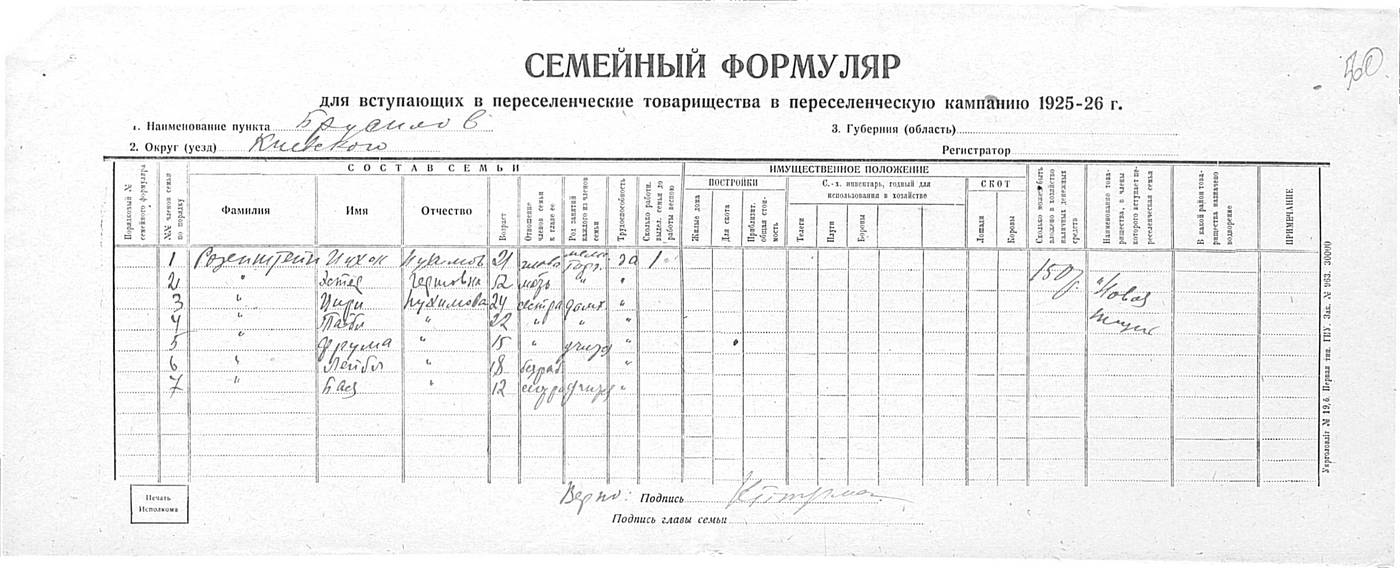 50
СЕМЕЙНЫЙ ФОРМУЛЯР
для вступающих в переселенческие товарищества в переселенческую кампанию 1925-26 г.
1. Наименование пункта Брусилов
3. Губерния (область)
2. Округ (уезд) Киевского
Регистратор
СОСТАВ СЕМЬИ
ИМУЩЕСТВЕННОЕ ПОЛОЖЕНИЕ
Порядковый № семейного формуляра
№№ членов семьи по порядку
Фамилия
Имя
Отчество
Возраст
Отношение членов семьи к главе ее
Род занятий каждого из членов семьи
Трудоспособность
Сколько работн. выдел. семья до работы весною
ПОСТРОЙКИ
Жилые дома
Для скота
Приблизит. общая стоимость
С.-х. инвентарь, годный для использования в хозяйстве
Телеги
Плуги
Бороны
СКОТ
Лошади
Коровы
Сколько может быть вложено в хозяйство наличных денежных средств
Наименование товарищества, в члены которого вступает переселенческая семья
В какой район товарищества назначено водворение
ПРИМЕЧАНИЕ
1 Розенштейн 21 глава мелк. торг. да 1 150 р.
2 " " 52 мать " " "Новая
3 " 24 сестра домх. "
4 " " 22 " " "
5 " Фрума " 15 " учится "
6 " Лейбл " 18 безраб "
7 " Бася " 12 сестра учится "
Печать Исполкома
Верно: Подпись
Подпись главы семьи
Укрголовліт № 19,6. Первая тип. ГПУ. Зак. № 963. 30000